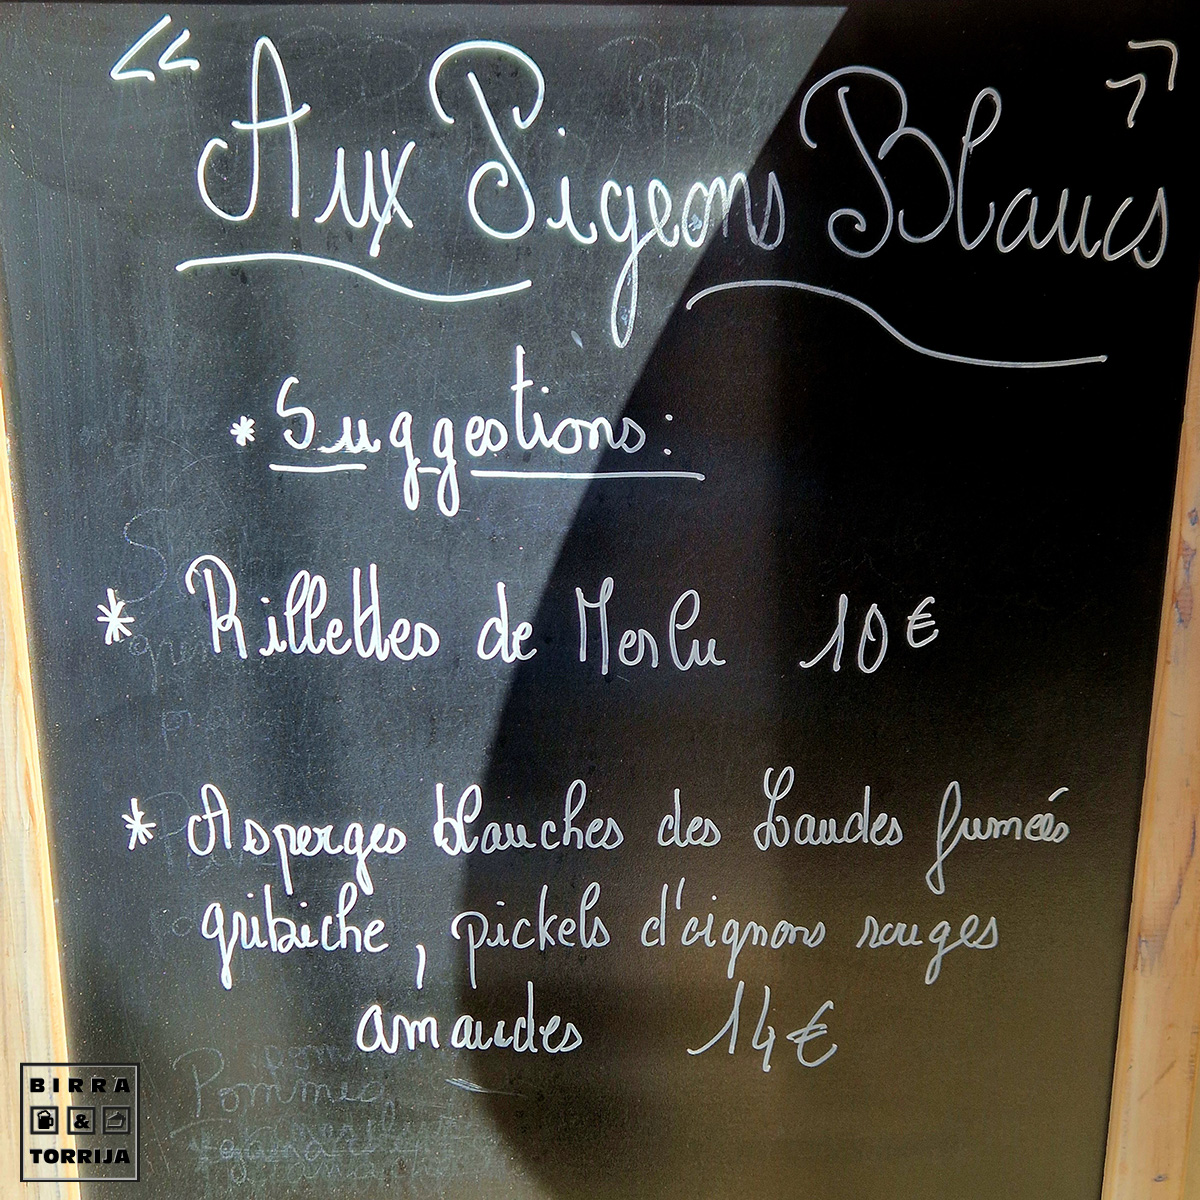 « Aux Pigeons Blancs »
* Suggestions :
* Rillettes de Merlu 10€
* Asperges blanches des Landes fumées
gribiche, pickels d'oignons rouges
amandes 14€
Pommes
BIRRA
&
TORRIJA